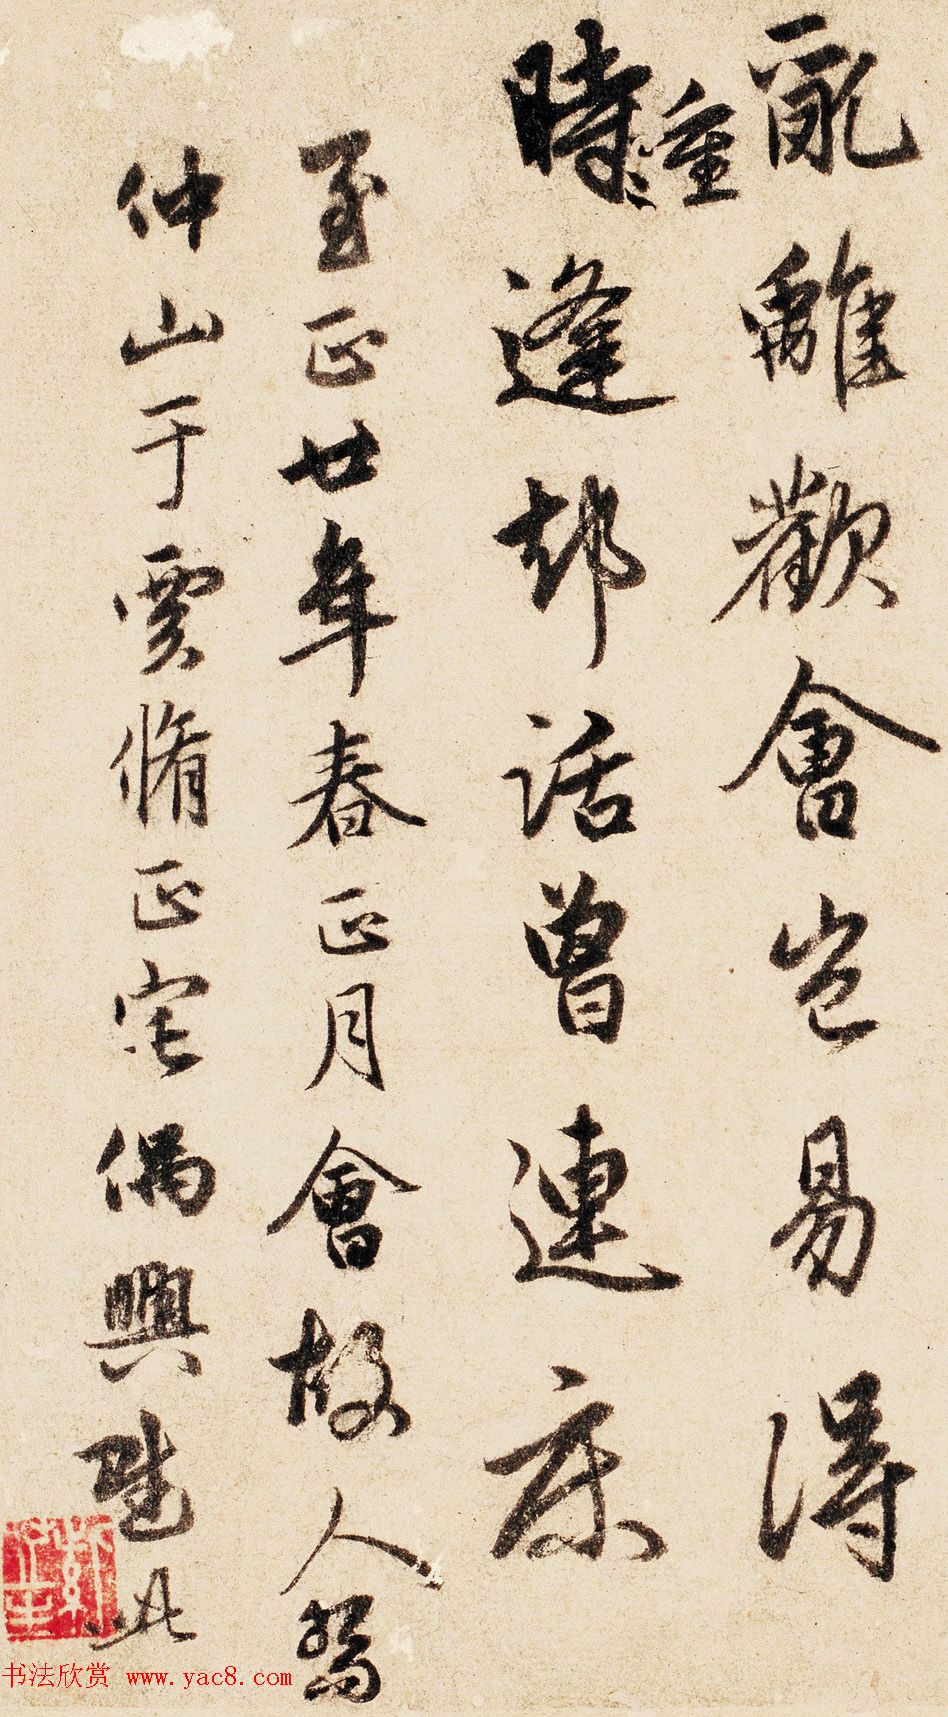 亂離歡會豈易得
時重逢却話曾連床
至正廿年春正月會故人
仲山于賈脩正宅偶興此
书法欣赏 www.yac8.com